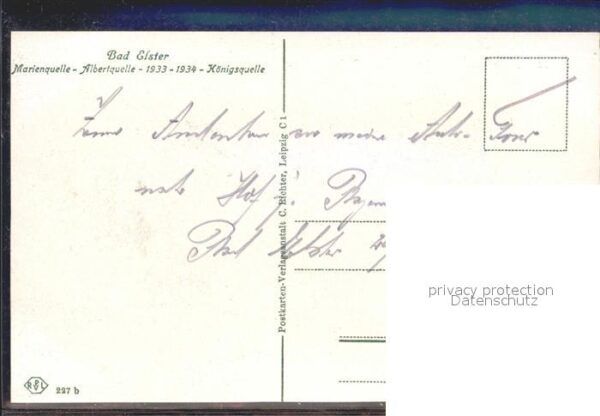 Bad Elster
Marienquelle - Albertquelle - 1933 - 1934 - Königsquelle
Zum Andenken an meine Auto-Tour
nach Hof
Bad Elster
Postkarten-Verlagsanstalt C. Richter, Leipzig C 1
privacy protection
Datenschutz
227 b